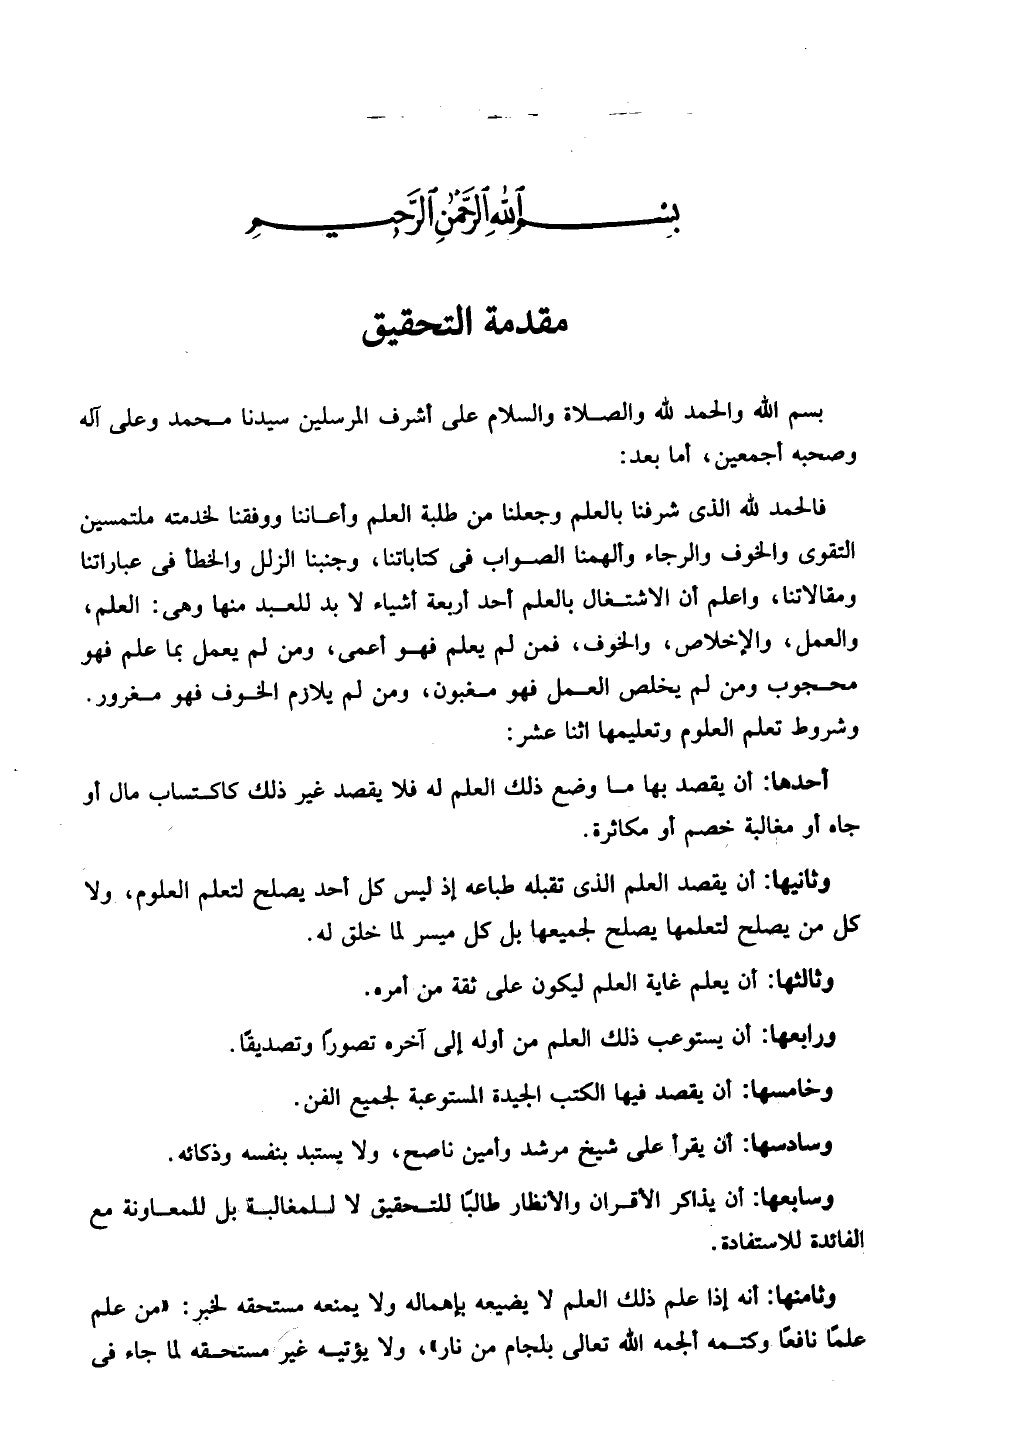 بسم الله الرحمن الرحيم
مقدمة التحقيق
بسم الله والحمد لله والصلاة والسلام على أشرف المرسلين سيدنا محمد وعلى آله
وصحبه أجمعين، أما بعد:
فالحمد لله الذى شرفنا بالعلم وجعلنا من طلبة العلم وأعاننا ووفقنا لخدمته ملتمسين
التقوى والخوف والرجاء وألهمنا الصواب فى كتاباتنا، وجنبنا الزلل والخطأ فى عباراتنا
ومقالاتنا، واعلم أن الاشتغال بالعلم أحد أربعة أشياء لا بد للعبد منها وهى: العلم،
والعمل، والإخلاص، والخوف، فمن لم يعلم فهو أعمى، ومن لم يعمل بما علم فهو
محجوب ومن لم يخلص العمل فهو مغبون، ومن لم يلازم الخوف فهو مغرور.
وشروط تعلم العلوم وتعليمها اثنا عشر:
أحدها: أن يقصد بها ما وضع ذلك العلم له فلا يقصد غير ذلك كاكتساب مال أو
جاه أو مغالبة خصم أو مكاثرة.
وثانيها: أن يقصد العلم الذى تقبله طباعه إذ ليس كل أحد يصلح لتعلم العلوم، ولا
كل من يصلح لتعلمها يصلح لجميعها بل كل ميسر لما خلق له.
وثالثها: أن يعلم غاية العلم ليكون على ثقة من أمره.
ورابعها: أن يستوعب ذلك العلم من أوله إلى آخره تصورًا وتصديقًا.
وخامسها: أن يقصد فيها الكتب الجيدة المستوعبة لجميع الفن.
وسادسها: أن يقرأ على شيخ مرشد وأمين ناصح، ولا يستبد بنفسه وذكائه.
وسابعها: أن يذاكر الأقران والأنظار طالبًا للتحقيق لا للمغالبة بل للمعاونة مع
الفائدة للاستفادة.
وثامنها: أنه إذا علم ذلك العلم لا يضيعه بإهماله ولا يمنعه مستحقه لخبر: «من علم
علمًا نافعًا وكتمه ألجمه الله تعالى بلجام من نار»، ولا يؤتيه غير مستحقه لما جاء فى